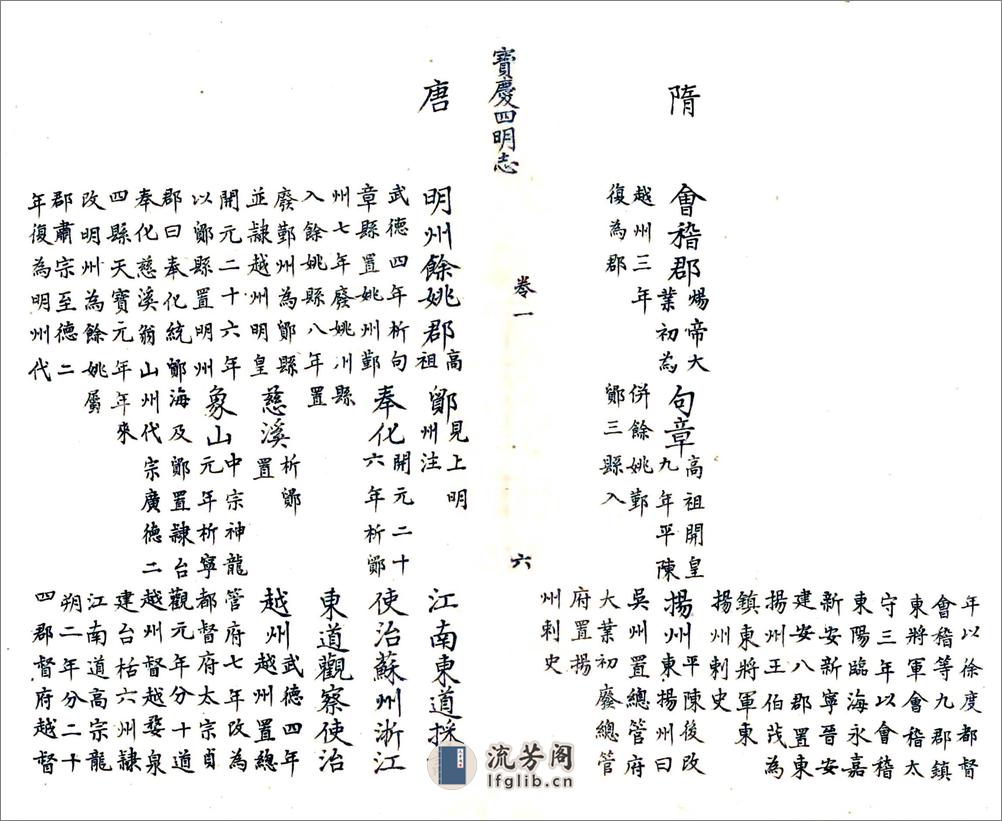 隋
會稽郡 煬帝大
業初為
越州三年
復為郡
句章 高祖開皇
九年平陳
併餘姚鄞
鄮三縣入
年以徐度都督
會稽等九郡鎮
東將軍會稽太
守三年以會稽
東陽臨海永嘉
新安新寧晉安
建安八郡置東
揚州王伯茂為
鎮東將軍東
揚州刺史
揚州 平陳後改
東揚州曰
吳州置總管府
大業初廢總管
府置揚
州刺史
寶慶四明志
卷一
六
唐
明州餘姚郡 高
祖
武德四年析句
章縣置姚州鄞
州七年廢姚州
入餘姚縣八年
廢鄞州為鄮縣
並隸越州明皇
開元二十六年
以鄮縣置明州
郡曰奉化統鄮
奉化慈溪翁山
四縣天寶元年
改明州為餘姚
郡肅宗至德二
年復為明州代
鄮 見上明
州注
奉化 開元二十
六年析鄮
縣
置
慈溪 析鄮
置
象山 中宗神龍
元年析寧
海及鄮置隸台
州代宗廣德二
年來
屬
江南東道採
使治蘇州浙江
東道觀察使治
越州 武德四年
越州置總
管府七年改為
都督府太宗貞
觀元年分十道
越州督越婺泉
建台括六州隸
江南道高宗龍
朔二年分二十
四郡督府越督
流芳阁
lfglib.cn